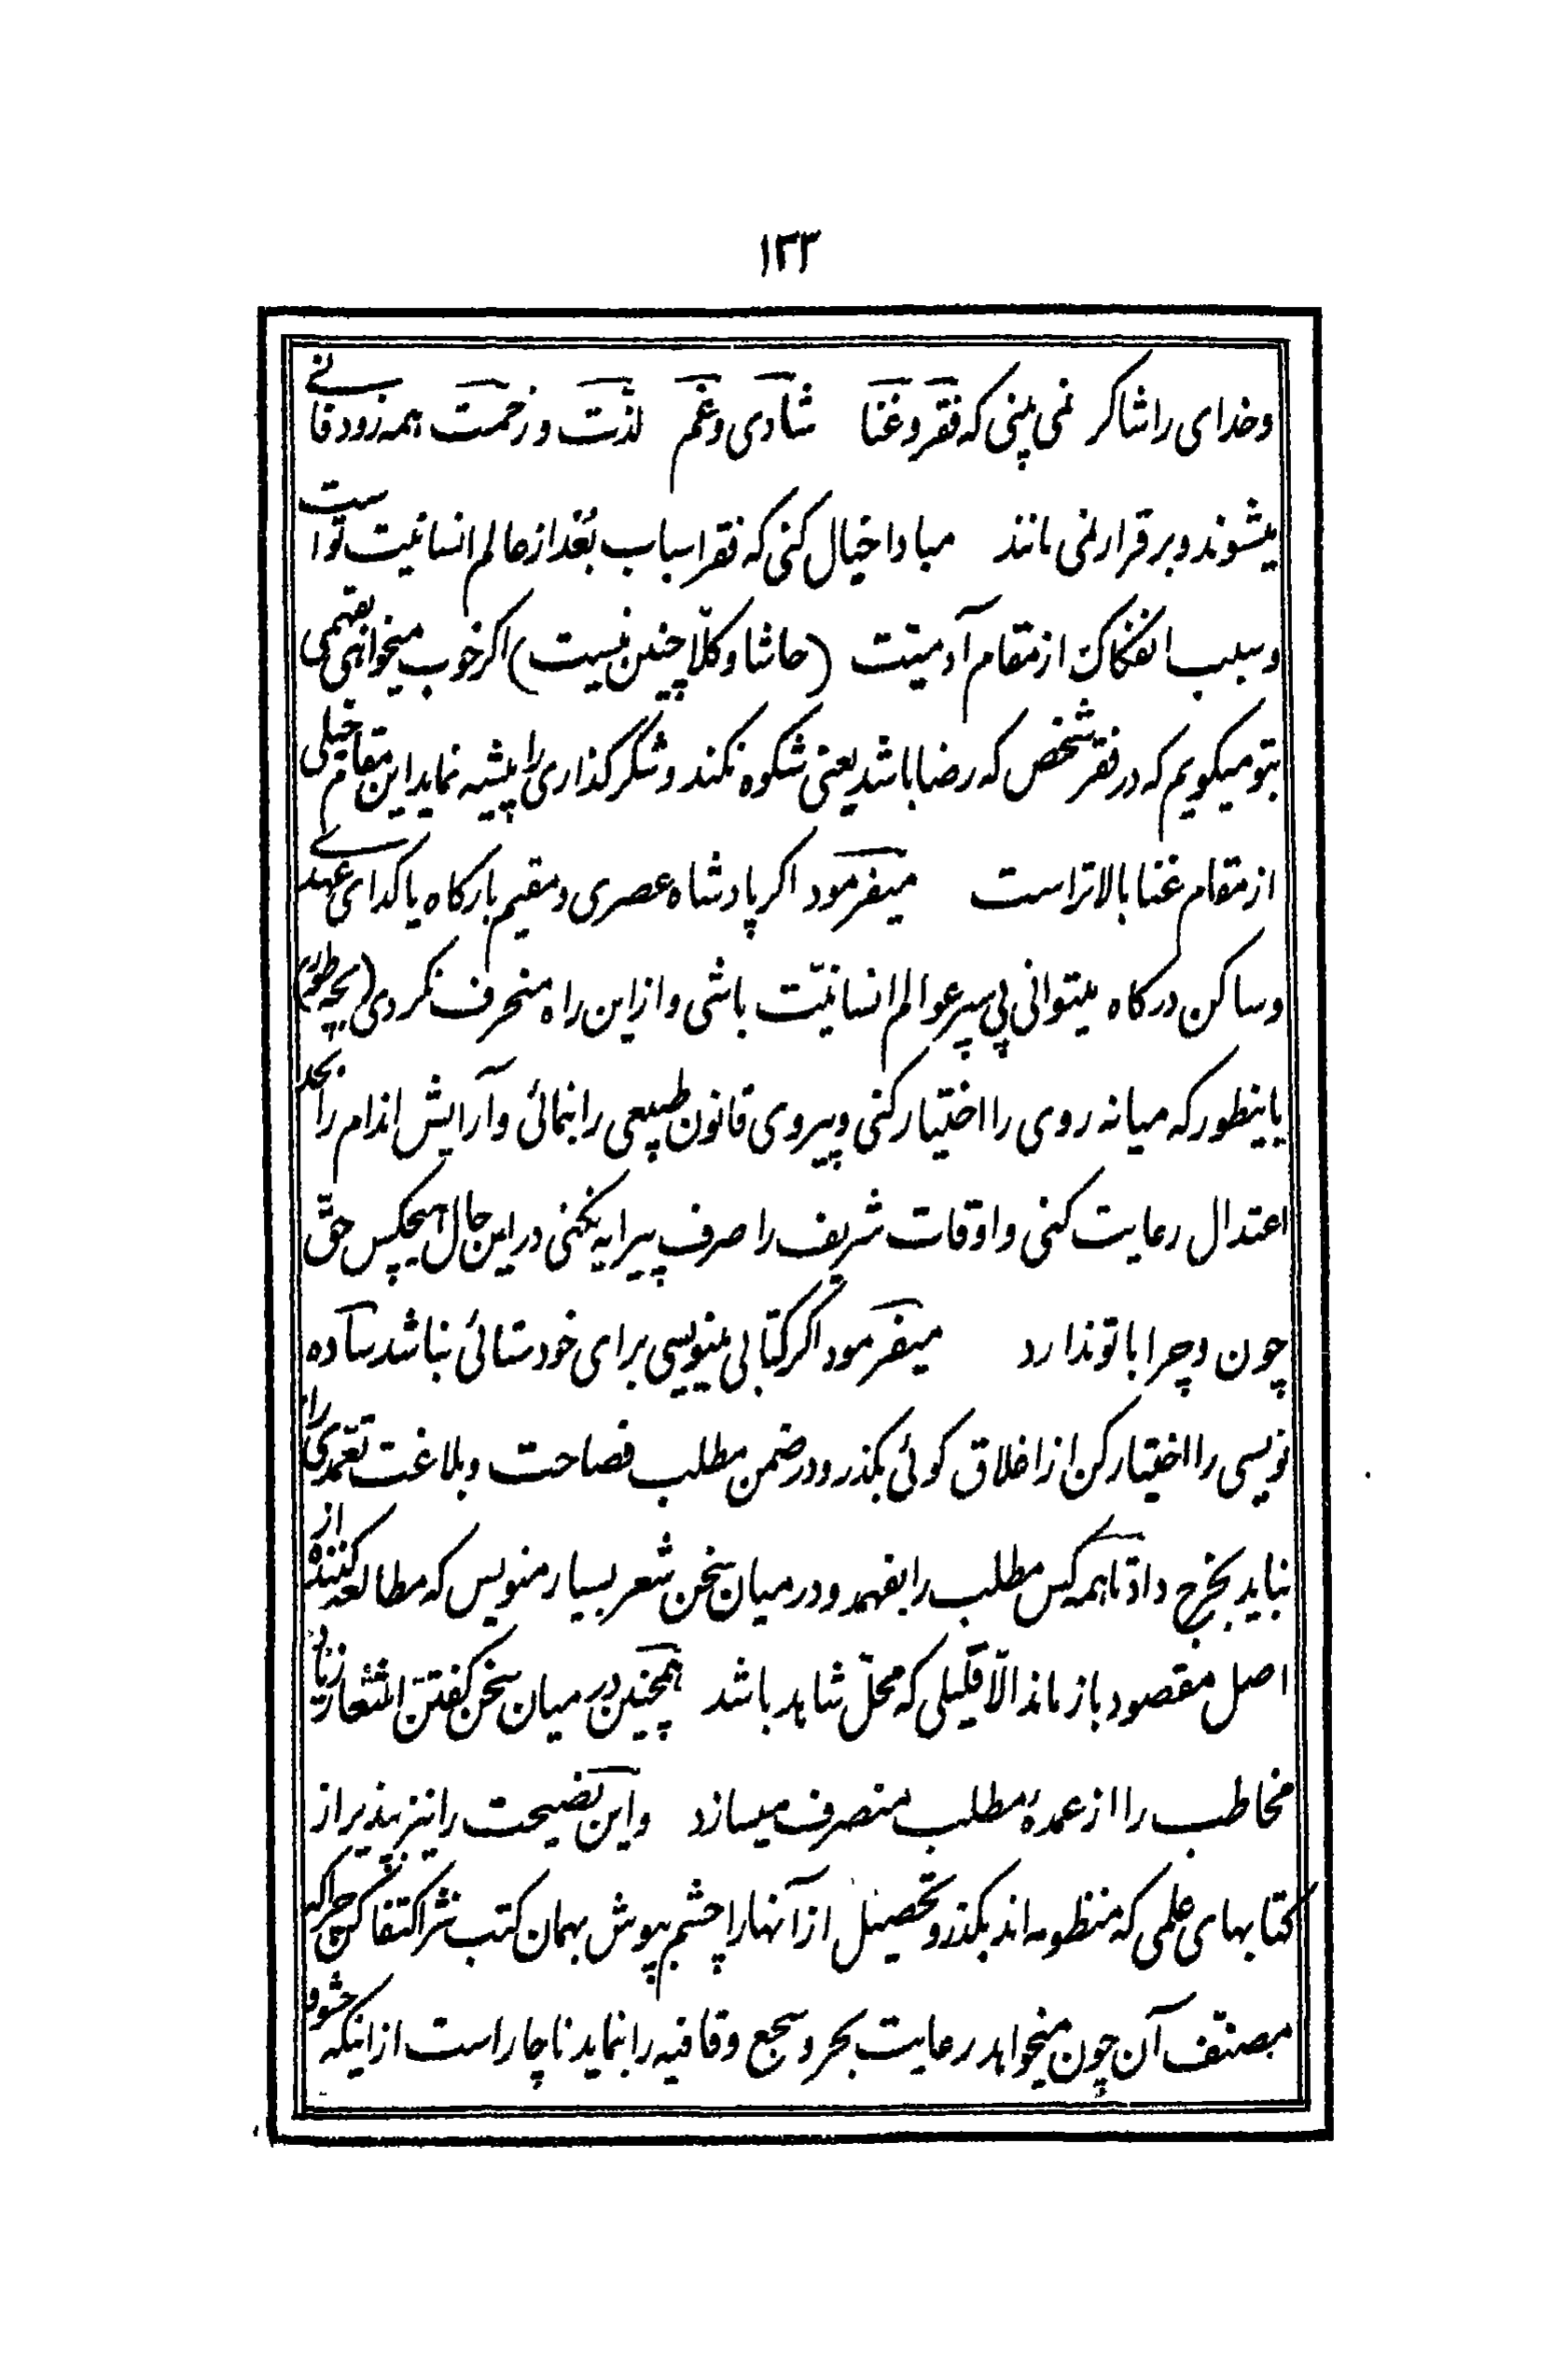 ۱۳۳
وخدای را شاکر نمی بینی که فقر و غنا شادی و غم لذت و زحمت همه زود فانی
میشوند و برقرار نمی مانند مبادا خیال کنی که فقر اسباب بُعد از عالم انسانیت تو است
و سبب انفکاک از مقام آدمیت (حاشا و کلّا چنین نیست) اکر خوب میخواهی بفهمی
بتو میکویم که در فقر شخص که رضا باشد یعنی شکوه نکند و شکر کذاری را پیشه نماید این مقام خیلی
از مقام غنا بالاتر است میفرمود اکر پادشاه عصری و مقیم بارکاه یا کدای عهدی
و ساکن درکاه میتوانی پی سپر عوالم انسانیّت باشی و از این راه منحرف نکردی (بچه طور)
باینطور که میانه روی را اختیار کنی و پیروی قانون طبیعی را نمائی و آرایش اندام را بحد
اعتدال رعایت کنی و اوقات شریف را صرف پیرایه نکنی در این حال هیچکس حقّ
چون و چرا با تو ندارد میفرمود اکر کتابی مینویسی برای خودستائی نباشد ساده
نویسی را اختیار کن از اغلاق کوئی بکذر و در ضمن مطلب فصاحت و بلاغت تعمدی را
نباید بخرج داد تا همه کس مطلب را بفهمد و در میان سخن شعر بسیار منویس که مطالعه کننده از
اصل مقصود باز ماند الّا قلیلی که محلّ شاهد باشد همچنین در میان سخن کفتن اشعار زیاد
مخاطب را از عمده مطلب منصرف میسازد و این نصیحت را نیز بپذیر از
کتابهای علمی که منظومه اند بکذر و تحصیل از آنها را چشم بپوش بهمان کتب نثر اکتفا کن چرا که
مصنّف آن چون میخواهد رعایت بحر و سجع و قافیه را نماید ناچار است از اینکه حشو و